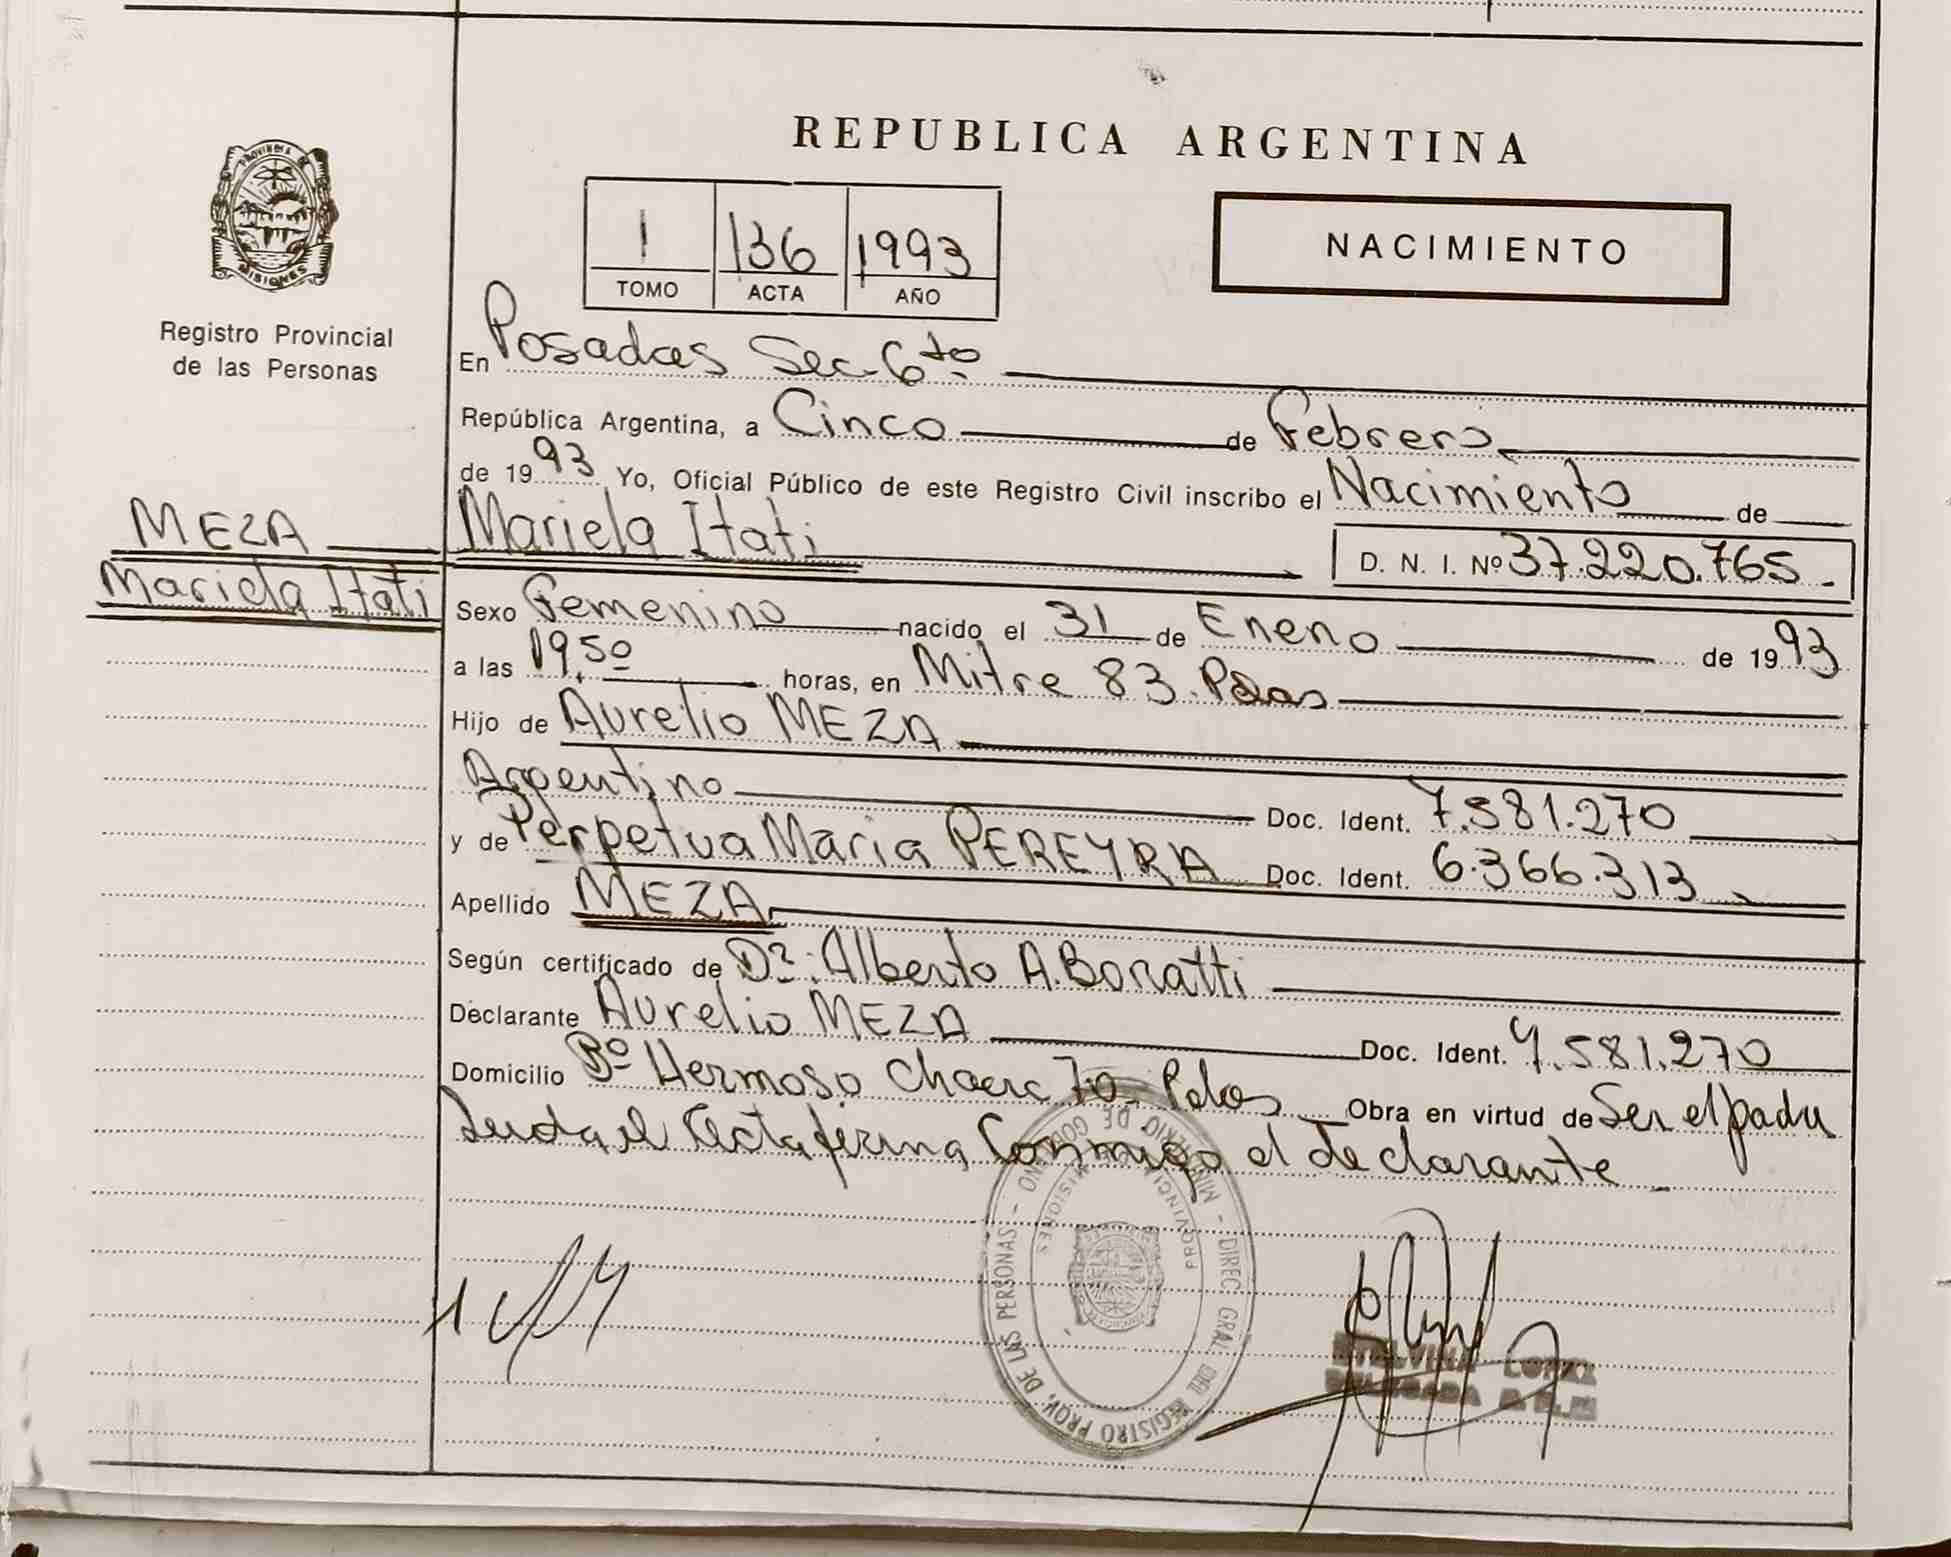 REPUBLICA ARGENTINA
PROVINCIA DE
MISIONES
Registro Provincial
de las Personas
1 136 1993
TOMO ACTA AÑO
NACIMIENTO
En Posadas Sec. 6ta
República Argentina, a Cinco de Febrero
de 1993 Yo, Oficial Público de este Registro Civil inscribo el Nacimiento de
MEZA
Mariela Itati
Mariela Itati D. N. I. Nº 37.220.765.
Sexo Femenino nacido el 31 de Enero de 1993
a las 19.50 horas, en Mitre 83. Pdas
Hijo de Aurelio MEZA
Argentino Doc. Ident. 7.581.270
y de Perpetua Maria PEREYRA Doc. Ident. 6.366.313
Apellido MEZA
Según certificado de Dr. Alberto A.
Declarante Aurelio MEZA Doc. Ident. 7.581.270
Domicilio Bº Hermoso Chacra 70. Pdas Obra en virtud de Ser el padre
Leida el Acta firma Conmigo el Declarante
MINISTERIO DE GOBIERNO - DIREC. GRAL. DEL REGISTRO PROV. DE LAS PERSONAS -
PROVINCIA MISIONES
LOPEZ
DELEGADA